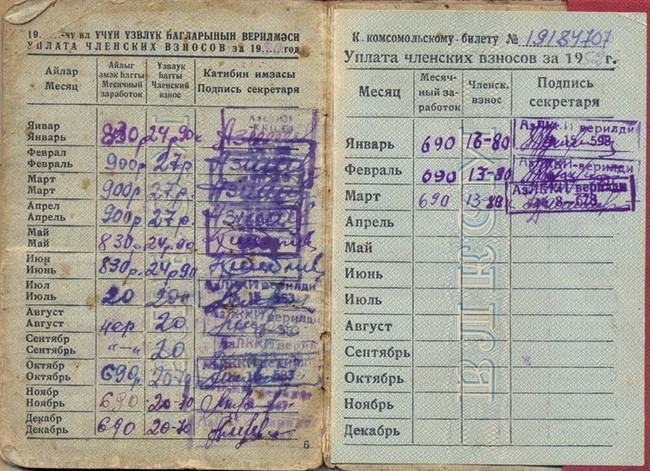 19 -чу ил ҮЧҮН ҮЗВЛҮК ҺАГЛАРЫНЫН ВЕРИЛМӘСИ
УПЛАТА ЧЛЕНСКИХ ВЗНОСОВ за 19 год
Айлар
Месяц
Айлыг әмәк һаггы
Месячный заработок
Үзвлүк һаггы
Членский взнос
Катибин имзасы
Подпись секретаря
Январ
Январь 830р 24р 90к
Феврал
Февраль 900р 27р
Март
Март 900р 27р
Апрел
Апрель 900р 27р
Май
Май 830р 24р 90
Июн
Июнь 830р 24р 90
Июл
Июль 20 20к
Август
Август 40р 20
Сентябр
Сентябрь "—" 20
Октябр
Октябрь 690р 20-70
Ноябр
Ноябрь 690 20-70
Декабр
Декабрь 690 20-70
6
К комсомольскому билету № 19184707
Уплата членских взносов за 19 г.
Месяц
Месячный заработок
Членск. взнос
Подпись секретаря
Январь 690 13-80 АзЛККИ верилди
Февраль 690 13-80 АзЛККИ верилди
Март 690 13-80 АзЛККИ верилди
Апрель
Май
Июнь
Июль
Август
Сентябрь
Октябрь
Ноябрь
Декабрь
ВЛКСМ